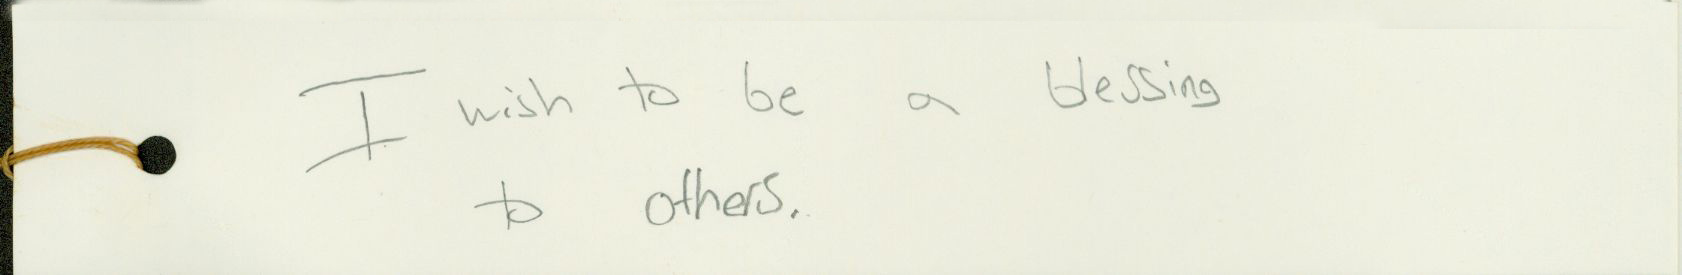 I wish to be a blessing
to others.